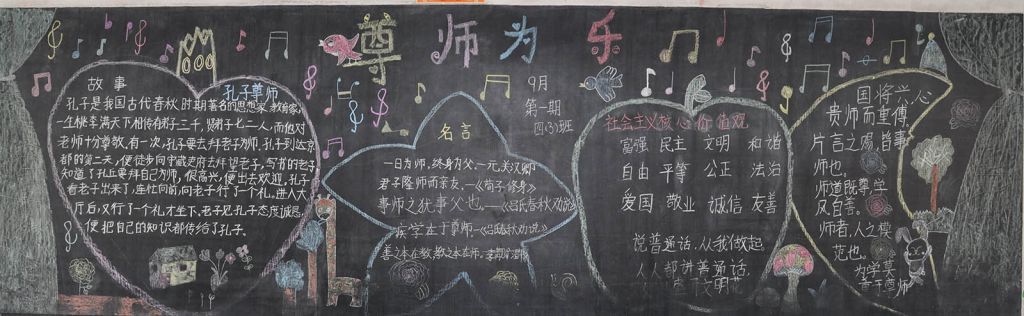 尊师为乐
9月
第一期
四(3)班
故事
孔子尊师
孔子是我国古代春秋时期著名的思想家 教育家,
一生桃李满天下相传有弟子三千,贤弟子七十二人,而他对
老师十分尊敬.有一次,孔子要去拜老子为师.孔子到达京
都的第二天,便徒步向守藏史府去拜望老子,写书的老子
知道了孔丘要拜自己为师,很高兴,便出去欢迎.孔子
看老子出来了,连忙向前,向老子行了一个礼.进入大
厅后,又行了一个礼才坐下.老子见孔子态度诚恳,
便把自己的知识都传给了孔子.
名言
一日为师,终身为父.—元.关汉卿
君子隆师而亲友.—《荀子·修身》
事师之犹事父也.——《吕氏春秋·劝说》
疾学在于尊师—《吕氏春秋·劝说》
善之本在教,教之本在师.
社会主义核心价值观
富强 民主 文明 和谐
自由 平等 公正 法治
爱国 敬业 诚信 友善
说普通话.从我做起
人人都讲普通话
文明
国将兴,心
贵师而重傅
片言之赐,皆事
师也.
师道既尊,学
风自善.
师者,人之模
范也.
为学莫
善于尊师